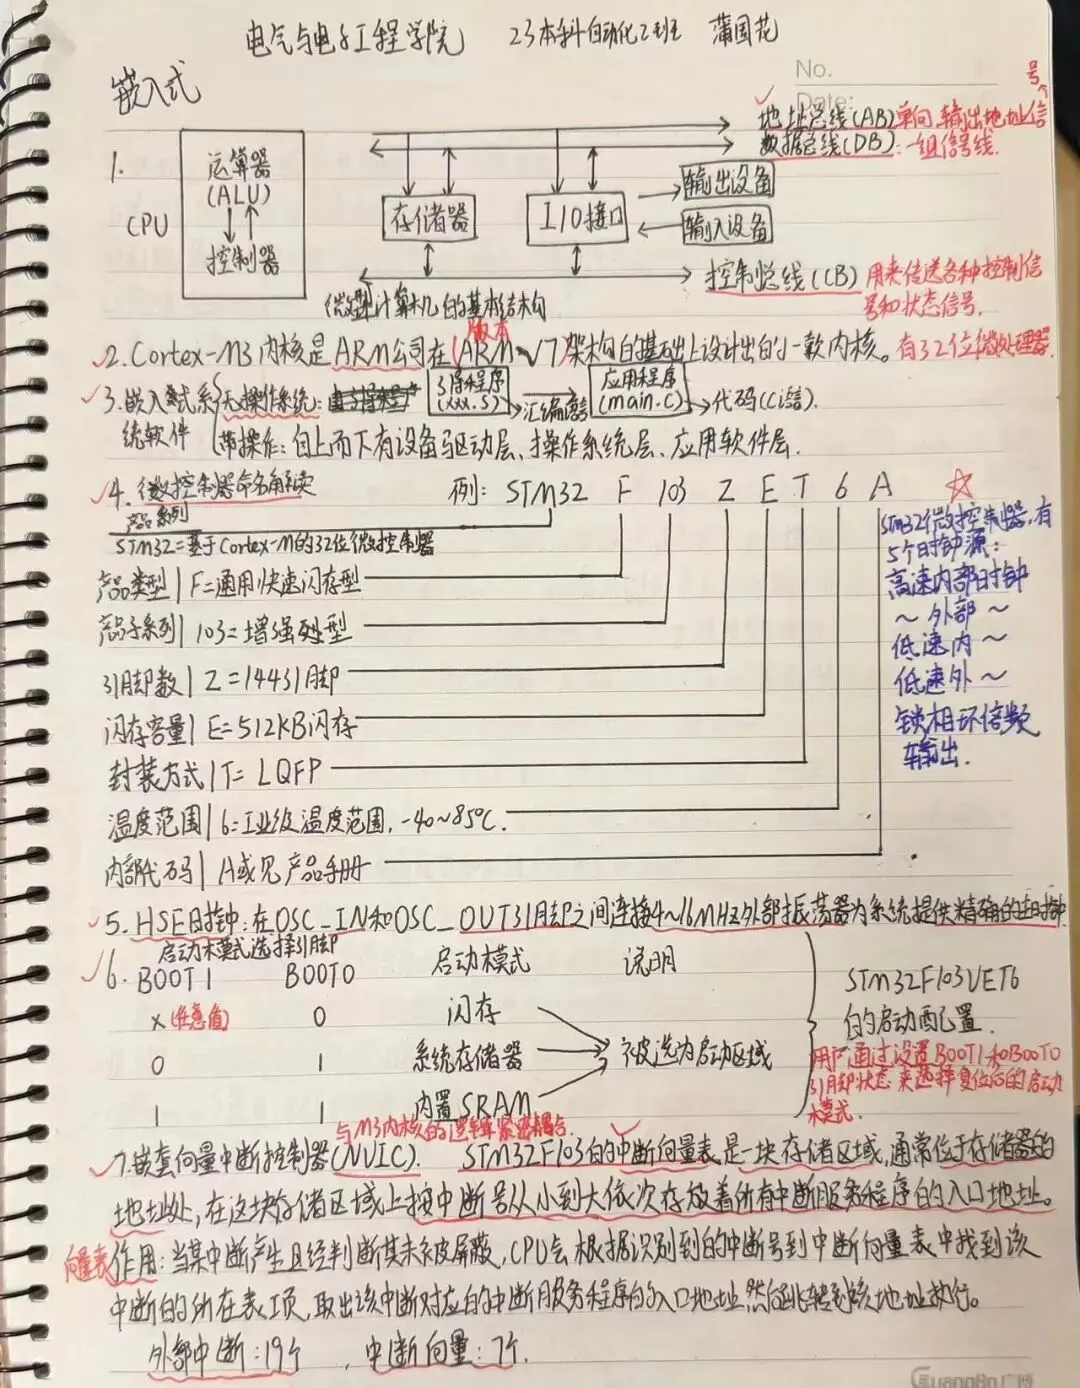 电气与电子工程学院 23本科自动化2班 蒲国花
No.
Date:
嵌入式
号
地址总线(AB)单向,输出地址信
数据总线(DB):一组信号线.
1.
CPU
运算器
(ALU)
控制器
存储器
I/O接口
输出设备
输入设备
控制总线(CB) 用来传送各种控制信
号和状态信号.
微型计算机的基本结构
版本
2. Cortex-M3内核是ARM公司在(ARM V7)架构的基础上设计出的一款内核。有32位微处理器
3.嵌入式系 无操作系统: 引导程序(xxx.s) 汇编语言 应用程序(main.c) 代码(C语言).
统软件 带操作:自上而下有设备驱动层、操作系统层、应用软件层.
4. 微控制器命名解读 例: STM32 F 103 Z E T 6 A
产品系列
STM32=基于Cortex-M的32位微控制器
产品类型|F=通用快速闪存型
产品子系列|103=增强型
引脚数|Z=144引脚
闪存容量|E=512KB闪存
封装方式|T=LQFP
温度范围|6=工业级温度范围,-40~85℃.
内部代码|A或见产品手册
STM32微控制器,有
5个时钟源:
高速内部时钟
~外部~
低速内~
低速外~
锁相环倍频
输出.
5. HSE时钟:在OSC_IN和OSC_OUT引脚之间连接4~16MHz外部振荡器为系统提供精确的主时钟
启动模式选择引脚
6. BOOT1 BOOT0 启动模式 说明
x(任意值) 0 闪存
0 1 系统存储器 被选为启动区域
1 1 内置SRAM
STM32F103VET6
的启动配置.
用户通过设置BOOT1和BOOT0
引脚状态来选择复位后的启动
模式.
与M3内核的逻辑紧密耦合.
7.嵌套向量中断控制器(NVIC). STM32F103的中断向量表是一块存储区域,通常位于存储器的
地址处,在这块存储区域上按中断号从小到大依次存放着所有中断服务程序的入口地址。
向量表作用:当某中断产生且经判断其未被屏蔽,CPU会根据识别到的中断号到中断向量表中找到该
中断的所在表项,取出该中断对应的中断服务程序的入口地址,然后跳转到该地址执行。
外部中断:19个,中断向量:7个.
GuangBo 广博